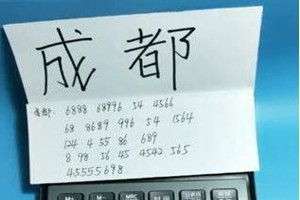 成都
成都: 6888 68996 54 4566
68 8689 996 54 1564
124 4 55 86 689
8 98 56 45 4542 565
45555698